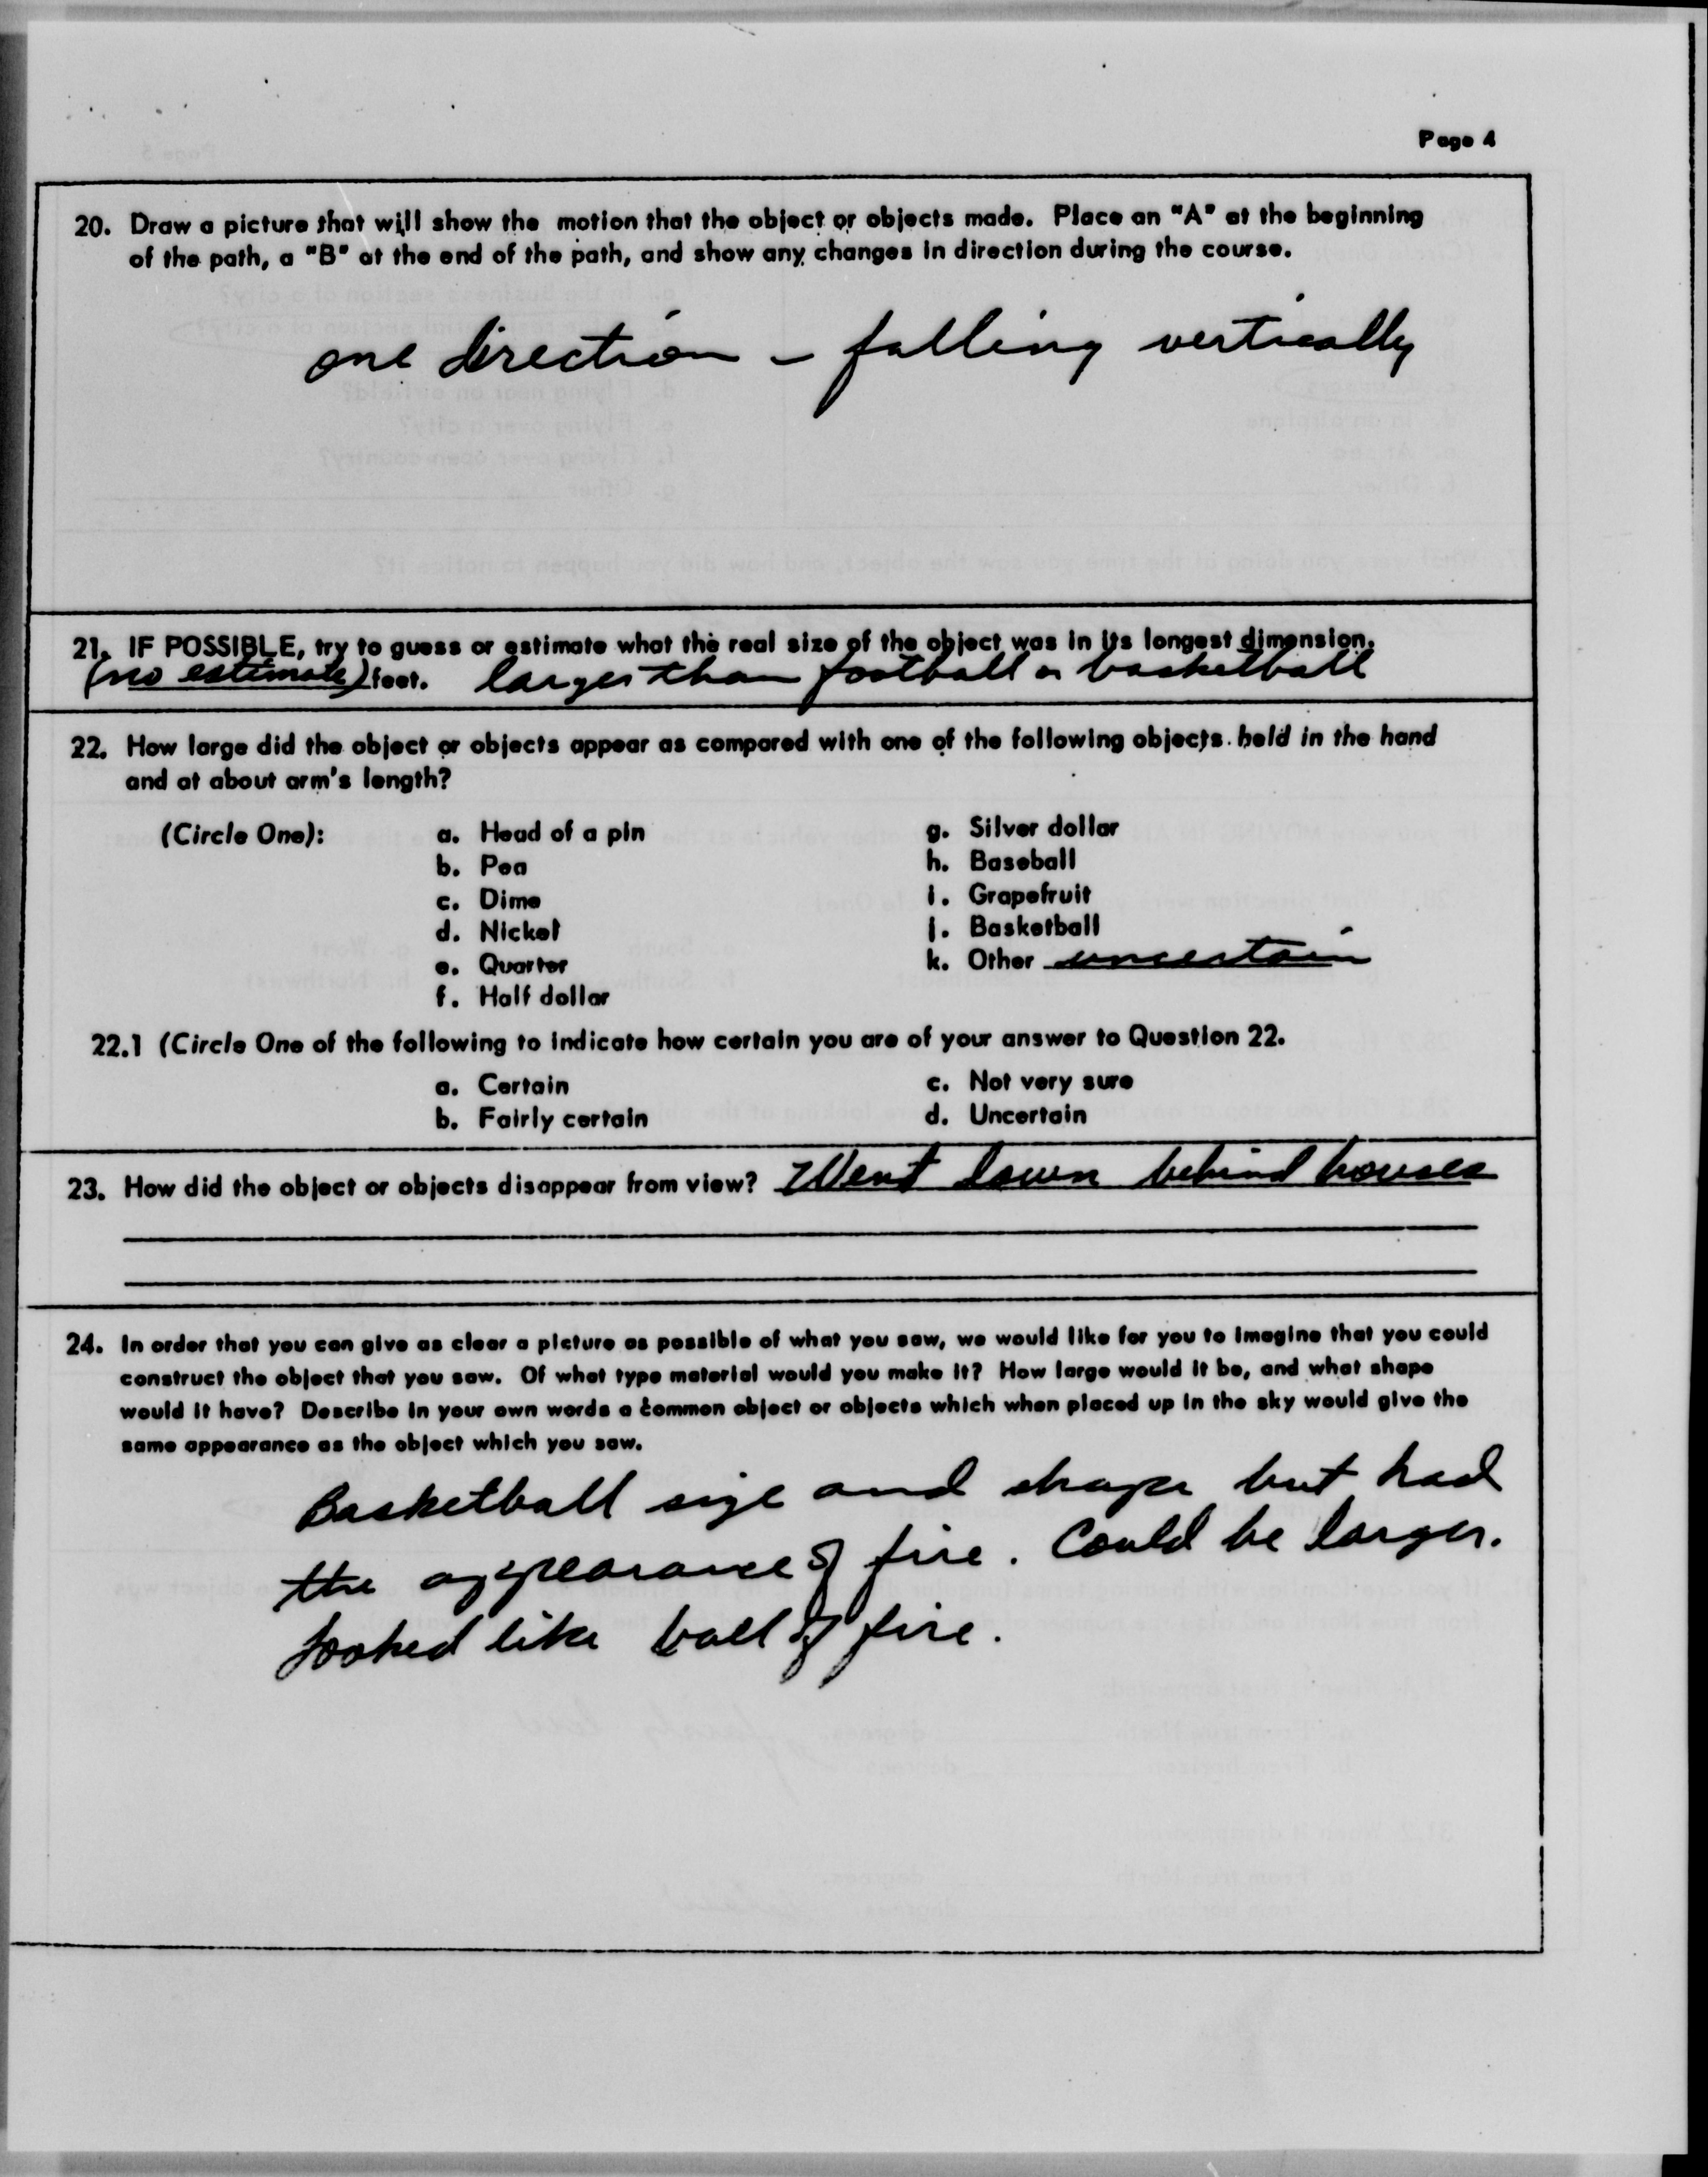 Page 4
20. Draw a picture that will show the motion that the object or objects made. Place an "A" at the beginning
of the path, a "B" at the end of the path, and show any changes in direction during the course.
one direction - falling vertically
21. IF POSSIBLE, try to guess or estimate what the real size of the object was in its longest dimension.
(no estimate) feet. larger than football or basketball
22. How large did the object or objects appear as compared with one of the following objects held in the hand
and at about arm's length?
(Circle One): a. Head of a pin g. Silver dollar
b. Pea h. Baseball
c. Dime i. Grapefruit
d. Nickel j. Basketball
e. Quarter k. Other uncertain
f. Half dollar
22.1 (Circle One of the following to indicate how certain you are of your answer to Question 22.
a. Certain c. Not very sure
b. Fairly certain d. Uncertain
23. How did the object or objects disappear from view? Went down behind houses
24. In order that you can give as clear a picture as possible of what you saw, we would like for you to imagine that you could
construct the object that you saw. Of what type material would you make it? How large would it be, and what shape
would it have? Describe in your own words a common object or objects which when placed up in the sky would give the
same appearance as the object which you saw.
Basketball size and shape but had
the appearance of fire. Could be larger.
Looked like ball of fire.